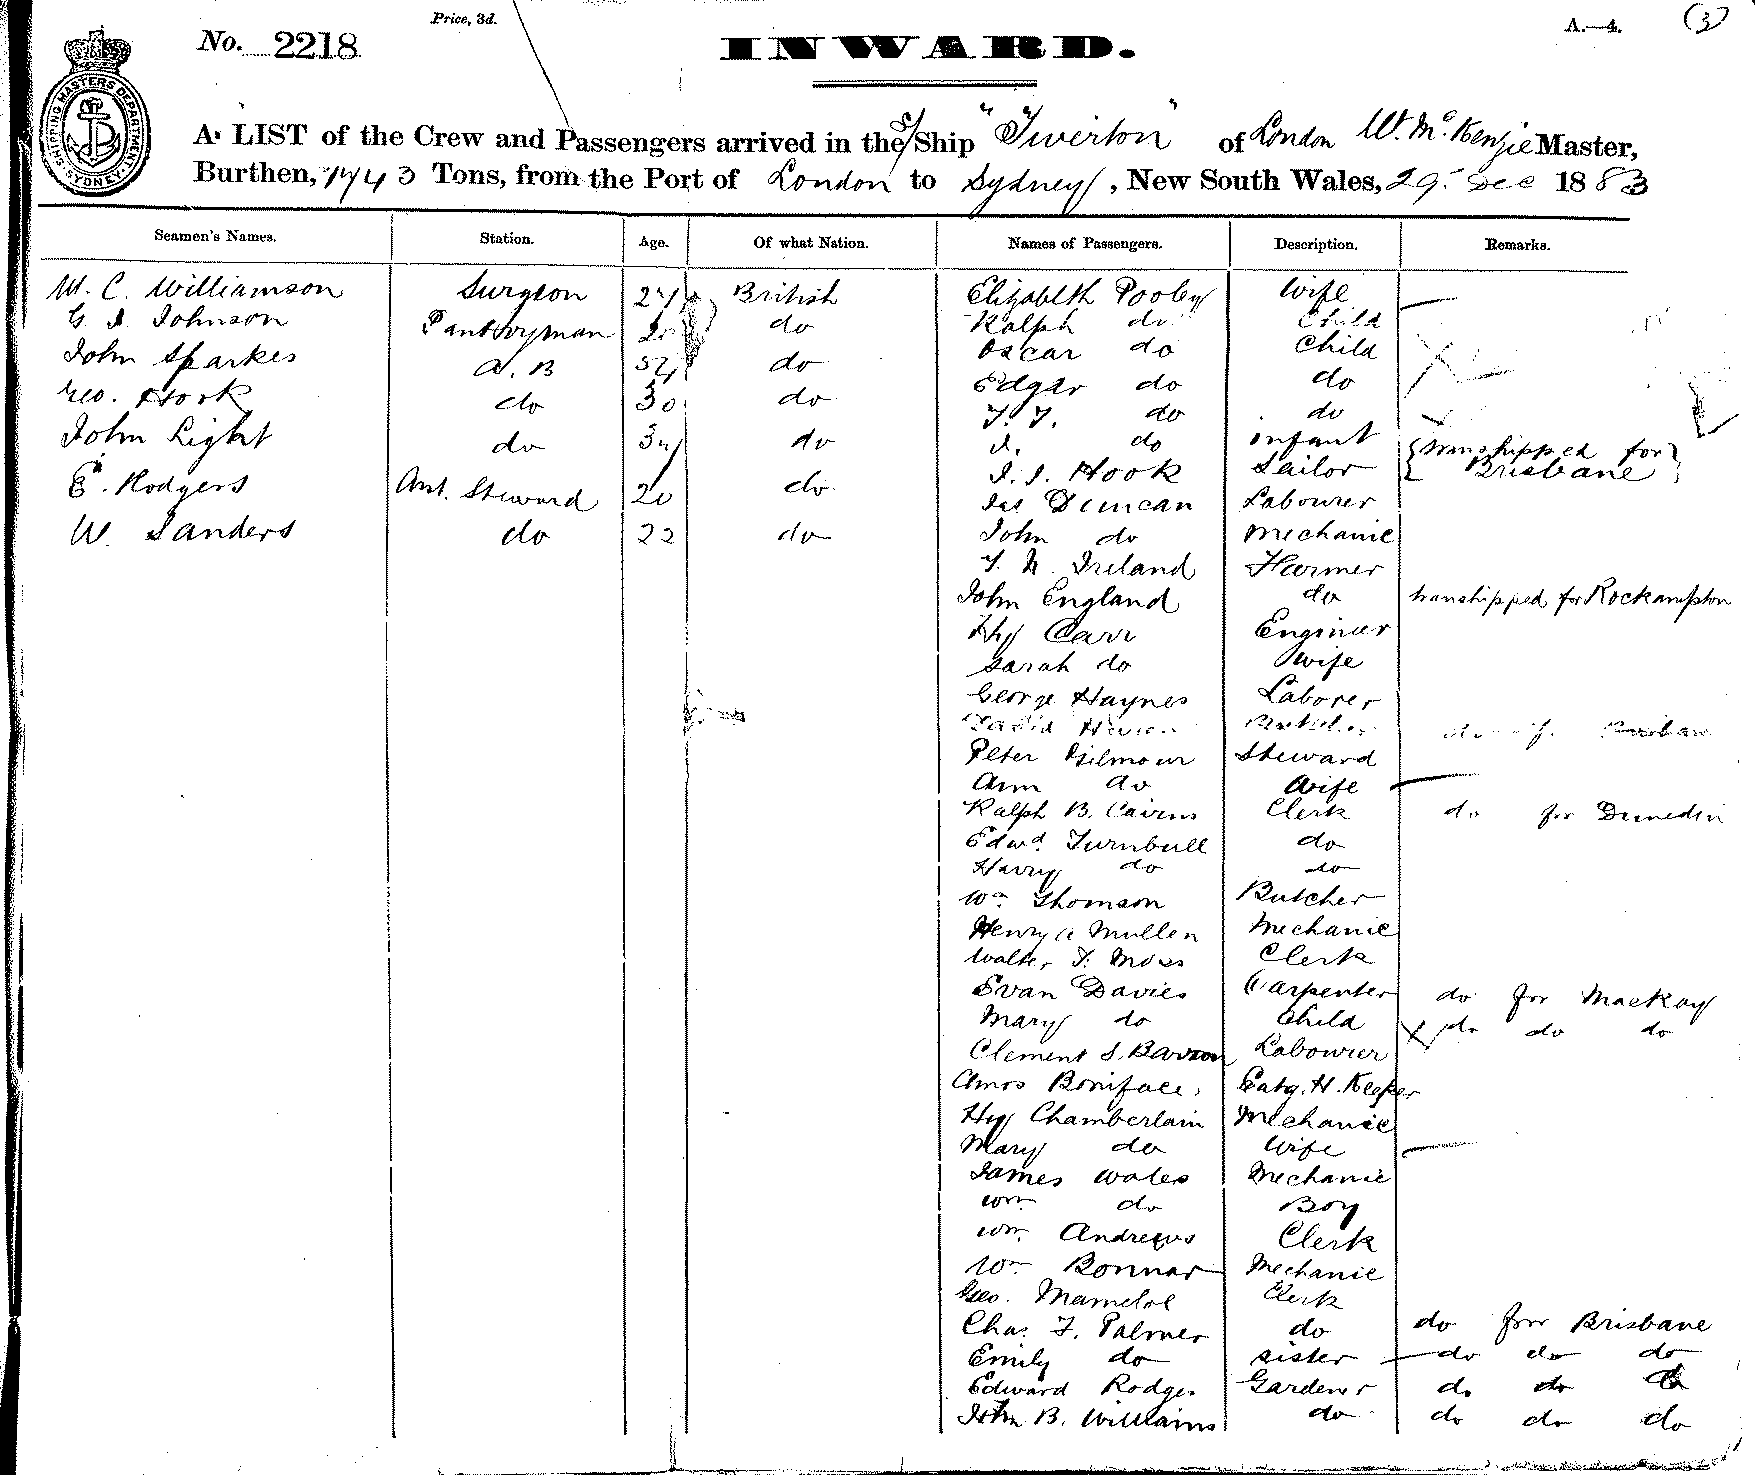 Price, 3d.
A.—4.
(3)
No. 2218
INWARD.
SHIPPING MASTERS DEPARTMENT SYDNEY
A LIST of the Crew and Passengers arrived in the S/Ship "Tiverton" of London W. McKenzie Master,
Burthen, 1743 Tons, from the Port of London to Sydney, New South Wales, 29 Dec 1883
Seamen's Names. Station. Age. Of what Nation. Names of Passengers. Description. Remarks.
W. C. Williamson Surgeon 27 British
G. J. Johnson Pantryman do
John Sparkes A.B do
Geo. Hook do 30 do
John Light do 34 do
E. Rodgers Ant. Steward 20 do
W. Sanders do 22 do
Elizabeth Pooley Wife
Ralph do Child
Oscar do Child
Edgar do do
do do
do infant
J. J. Hook Sailor transhipped for Brisbane
Jas Duncan Labourer
John do Mechanic
Ireland Farmer
John England do transhipped for Rockampton
Hy Carr Engineer
Sarah do Wife
George Haynes Laborer
David Butcher do for Brisbane
Peter Gilmour Steward
Ann do Wife
Ralph B. Cairns Clerk do for Dunedin
Edwd Turnbull do
Harry do do
Wm Thomson Butcher
Henry A Mullen Mechanic
Walter F. Moss Clerk
Evan Davies Carpenter do for Mackay
Mary do Child do do do
Clement S. Barron Labourer
Amos Boniface, Eatg. H. Keeper
Hy Chamberlain Mechanic
Mary do Wife
James Wales Mechanic
Wm do Boy
Wm Andrews Clerk
Wm Bonnar Mechanic
Geo. Clerk
Chas. F. Palmer do do for Brisbane
Emily do sister do do do
Edward Rodger Gardener do do do
John B. Williams do do do do